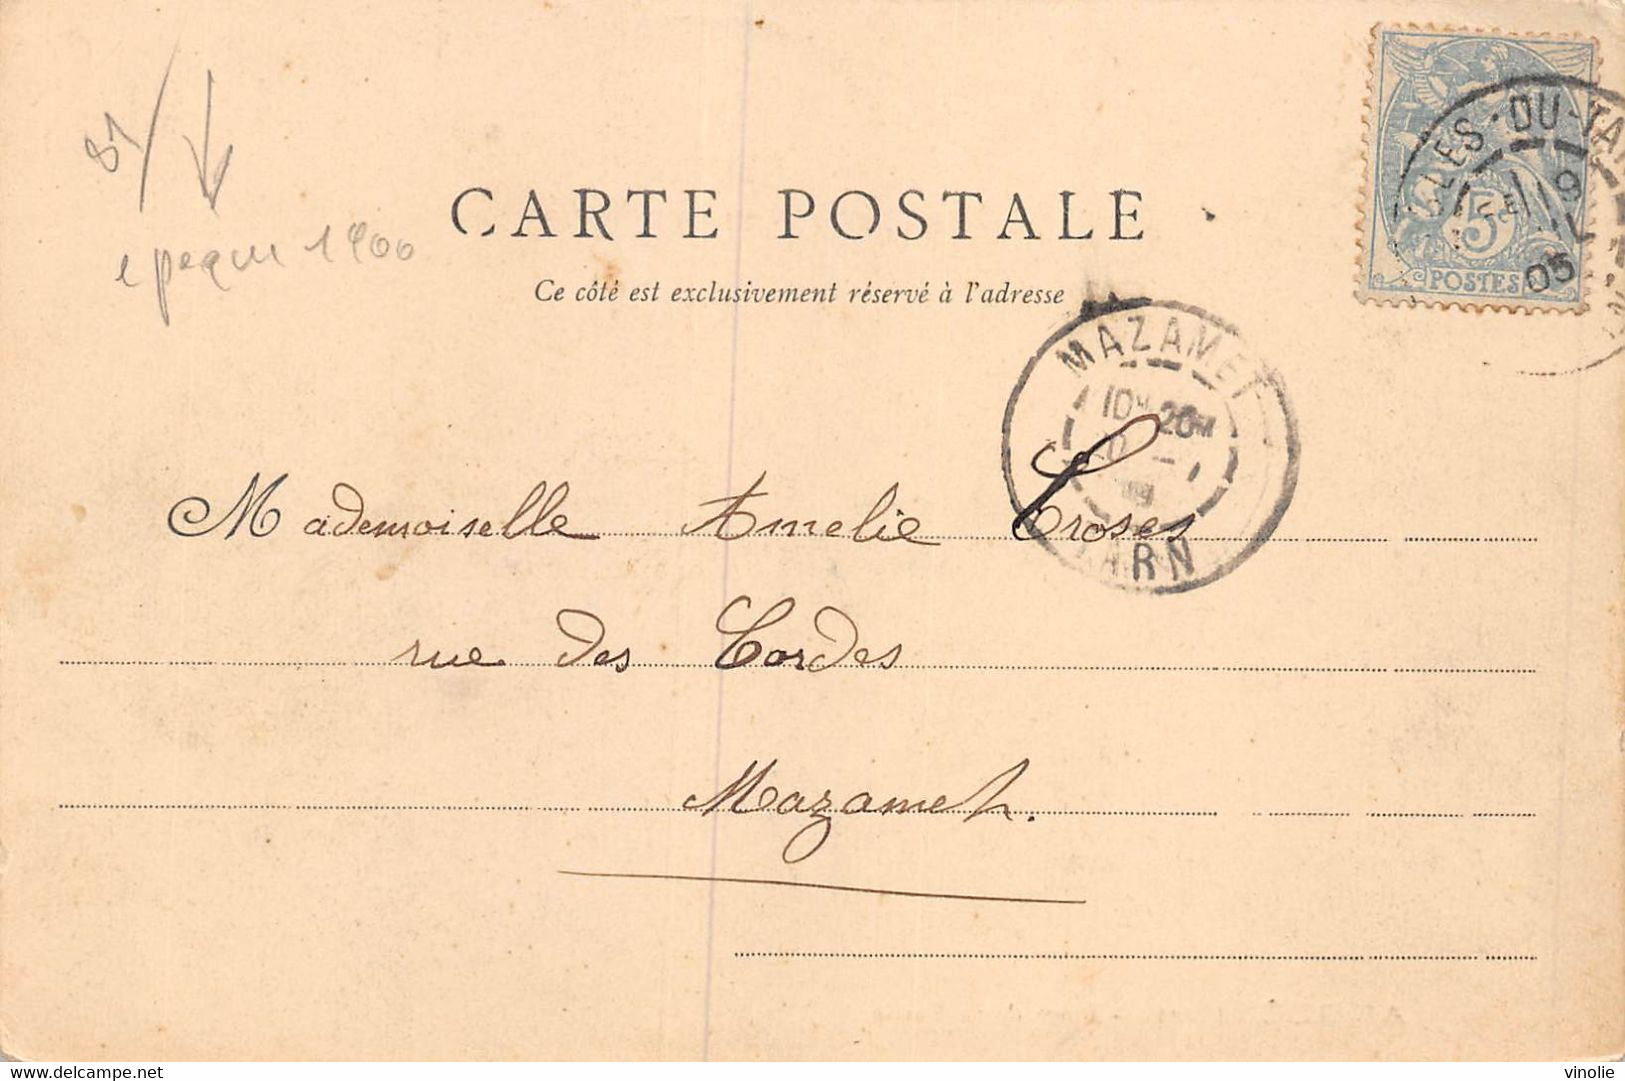 81
epoque 1900
CARTE POSTALE
Ce côté est exclusivement réservé à l'adresse
5c
POSTES
DU-TA
9
05
MAZAMET
10H 20M
TARN
Mademoiselle Amelie Croses
rue des Cordes
Mazamet.
delcampe.net
vinolie